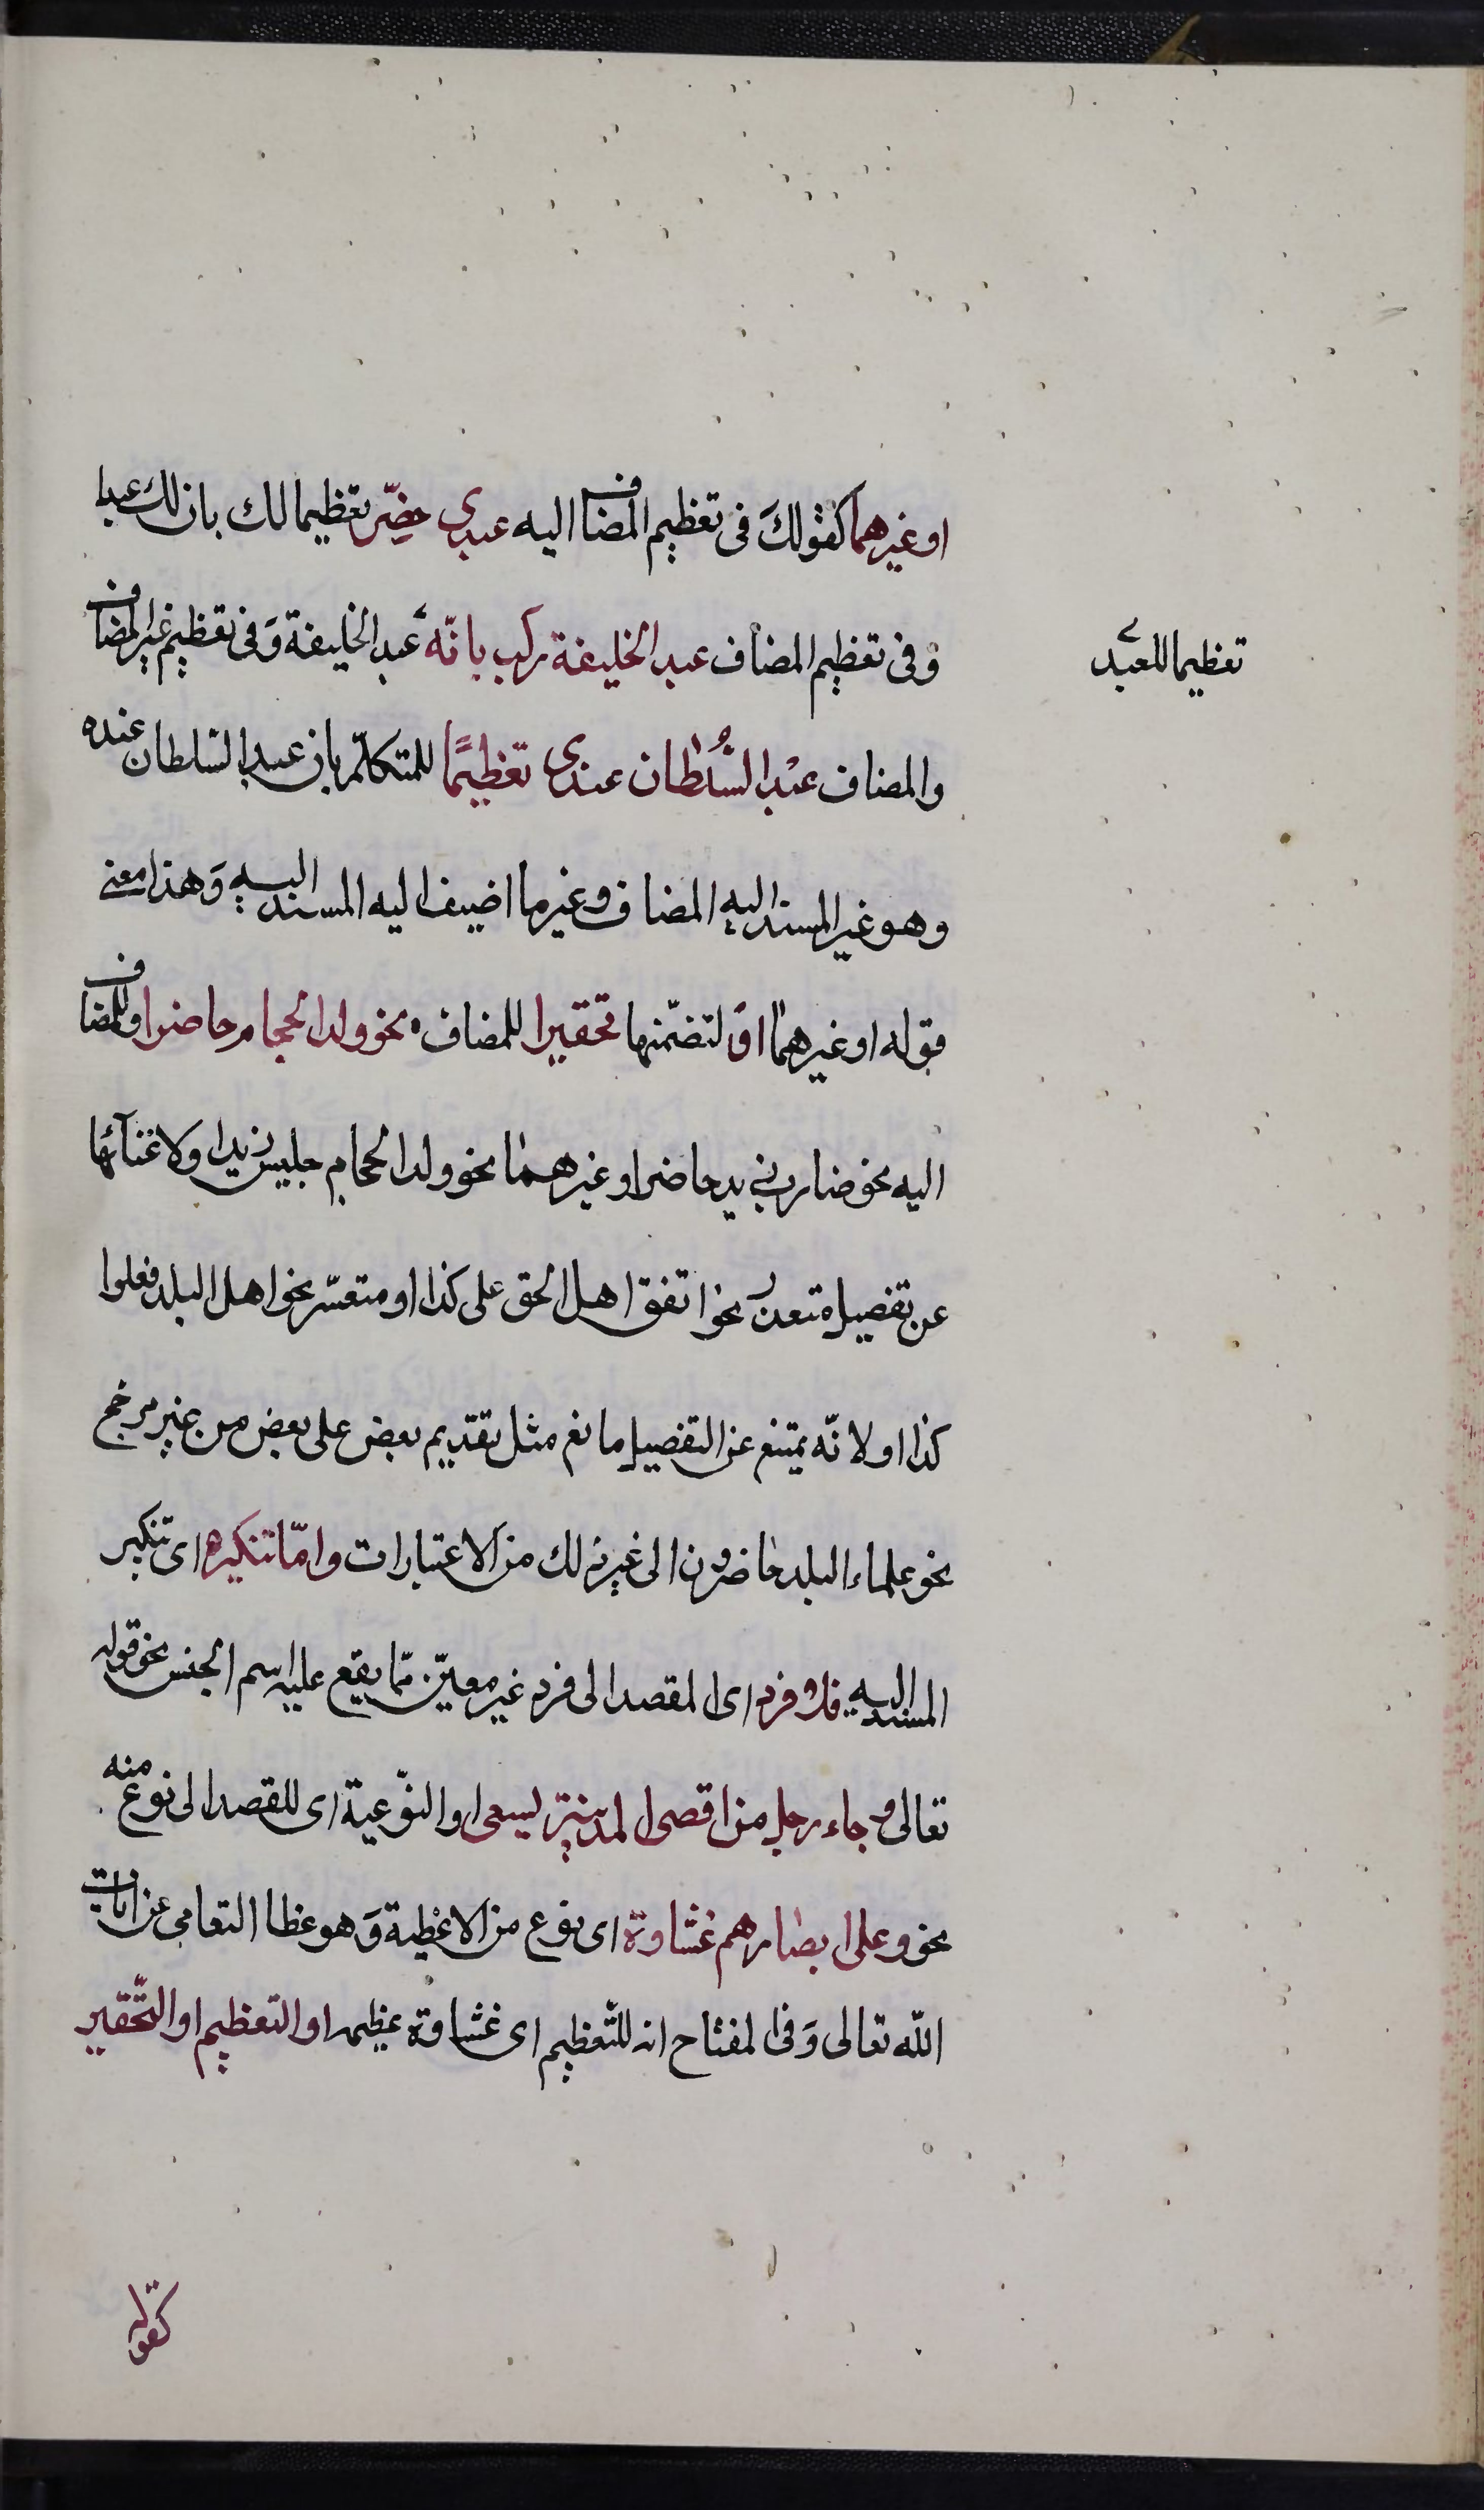 او غيرهما كقولكَ فى تعظيم المضاف اليه عبدى حضّر تعظيما لك بان لك عبدا
وفى تعظيم المضاف عبد الخليفة ركب بانّه عبد الخليفة وَفى تعظيم غير المضاف
تعظيما للعبد
والمضاف عبْد السُّلطان عندى تعظيمًا للمتكلّم بان عبد السّلطان عنده
وهو غير المسند اليه المضاف وغير ما اضيف اليه المسند اليه وَهذا معنى
قوله او غيرهما اوَ لتضمّنها تحقيرا للمضاف نحو ولد الحجام حاضر او للمضاف
اليه نحو ضارب زيد حاضر او غيرهما نحو ولد الحجام جليس زيد او لاغنآئها
عن تفصيل متعذر نحو اتفق اهل الحق على كذا او متعسّر نحو اهل البلد فعلوا
كذا او لانّه يمتنع عن التفصيل مانع مثل تقديم بعض على بعض من غير مرجح
نحو علماء البلد حاضرون الى غير ذلك من الاعتبارات وامّا تنكيره اى تنكير
المسند اليه فللافرد اى لمقصد الى فرد غير معيّن ممّا يقع عليه اسم الجنس نحو قوله
تعالى وجاء رجل من اقصى المدينة يسعى او النّوعية اى للقصد الى نوع منه
نحو وعلى ابصارهم غشاوة اى نوع من الاغطية وَهو غطا التعامى عن ايات
اللّه تعالى وَفى المفتاح انه للتّعظيم اى غشاوة عظيمه او التعظيم او التّحقير
كقوله